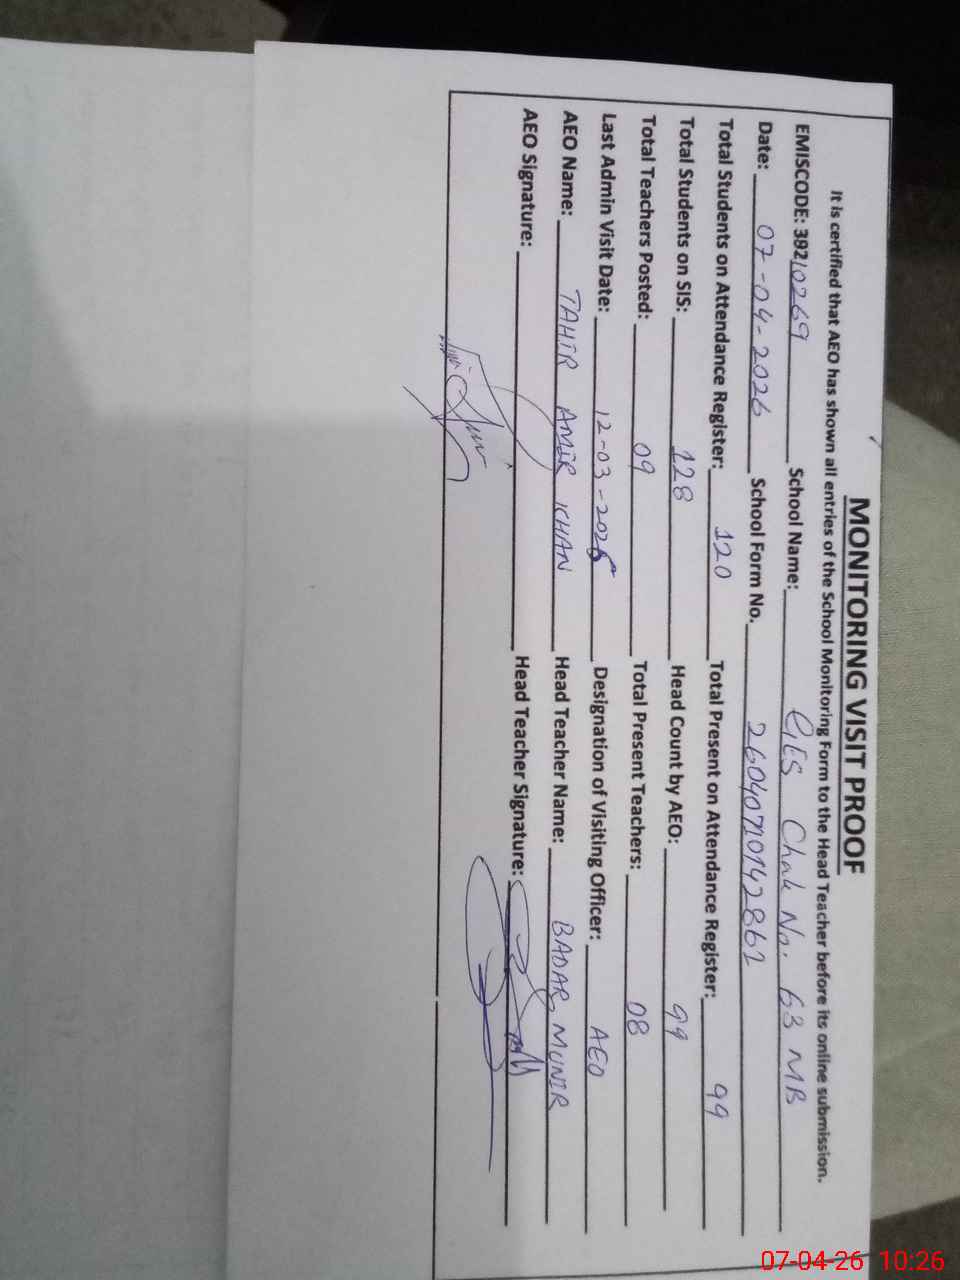 MONITORING VISIT PROOF
It is certified that AEO has shown all entries of the School Monitoring Form to the Head Teacher before its online submission.
EMISCODE: 39210269 School Name: GES Chak No. 63 MB
Date: 07-04-2026 School Form No. 26040710142862
Total Students on Attendance Register: 120 Total Present on Attendance Register: 99
Total Students on SIS: 128 Head Count by AEO: 99
Total Teachers Posted: 09 Total Present Teachers: 08
Last Admin Visit Date: 12-03-2026 Designation of Visiting Officer: AEO
AEO Name: TAHIR AMIR KHAN Head Teacher Name: BADAR MUNIR
AEO Signature: Head Teacher Signature:
07-04-26 10:26